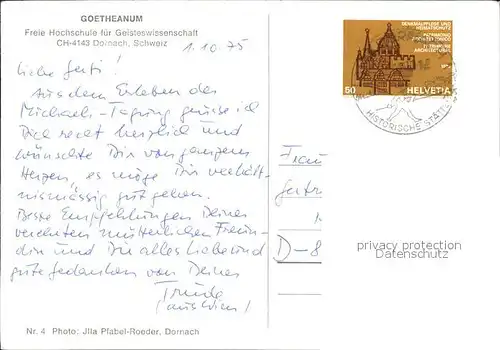 GOETHEANUM
Freie Hochschule für Geisteswissenschaft
CH-4143 Dornach, Schweiz
1.10.75
Liebe Gerti!
Aus dem Erleben der
Michaeli-Tagung grüsse ich
Dich recht herzlich und
wünschte Dir von ganzem
Herzen, es möge Dir verhält-
nismässig gut gehen.
Beste Empfehlungen Deiner
verehrten mütterlichen Freun-
din und Dir alles Liebe und
gute Gedanken von Deiner
Trude
(aus Wien)
Nr. 4 Photo: Jlla Pfabel-Roeder, Dornach
DENKMALPFLEGE UND
HEIMATSCHUTZ
PATRIMONIO
ARCHITETTONICO
PATRIMOINE
ARCHITECTURAL
50 HELVETIA
HISTORISCHE STÄT
Frau
Gertr
D-8
privacy protection
Datenschutz